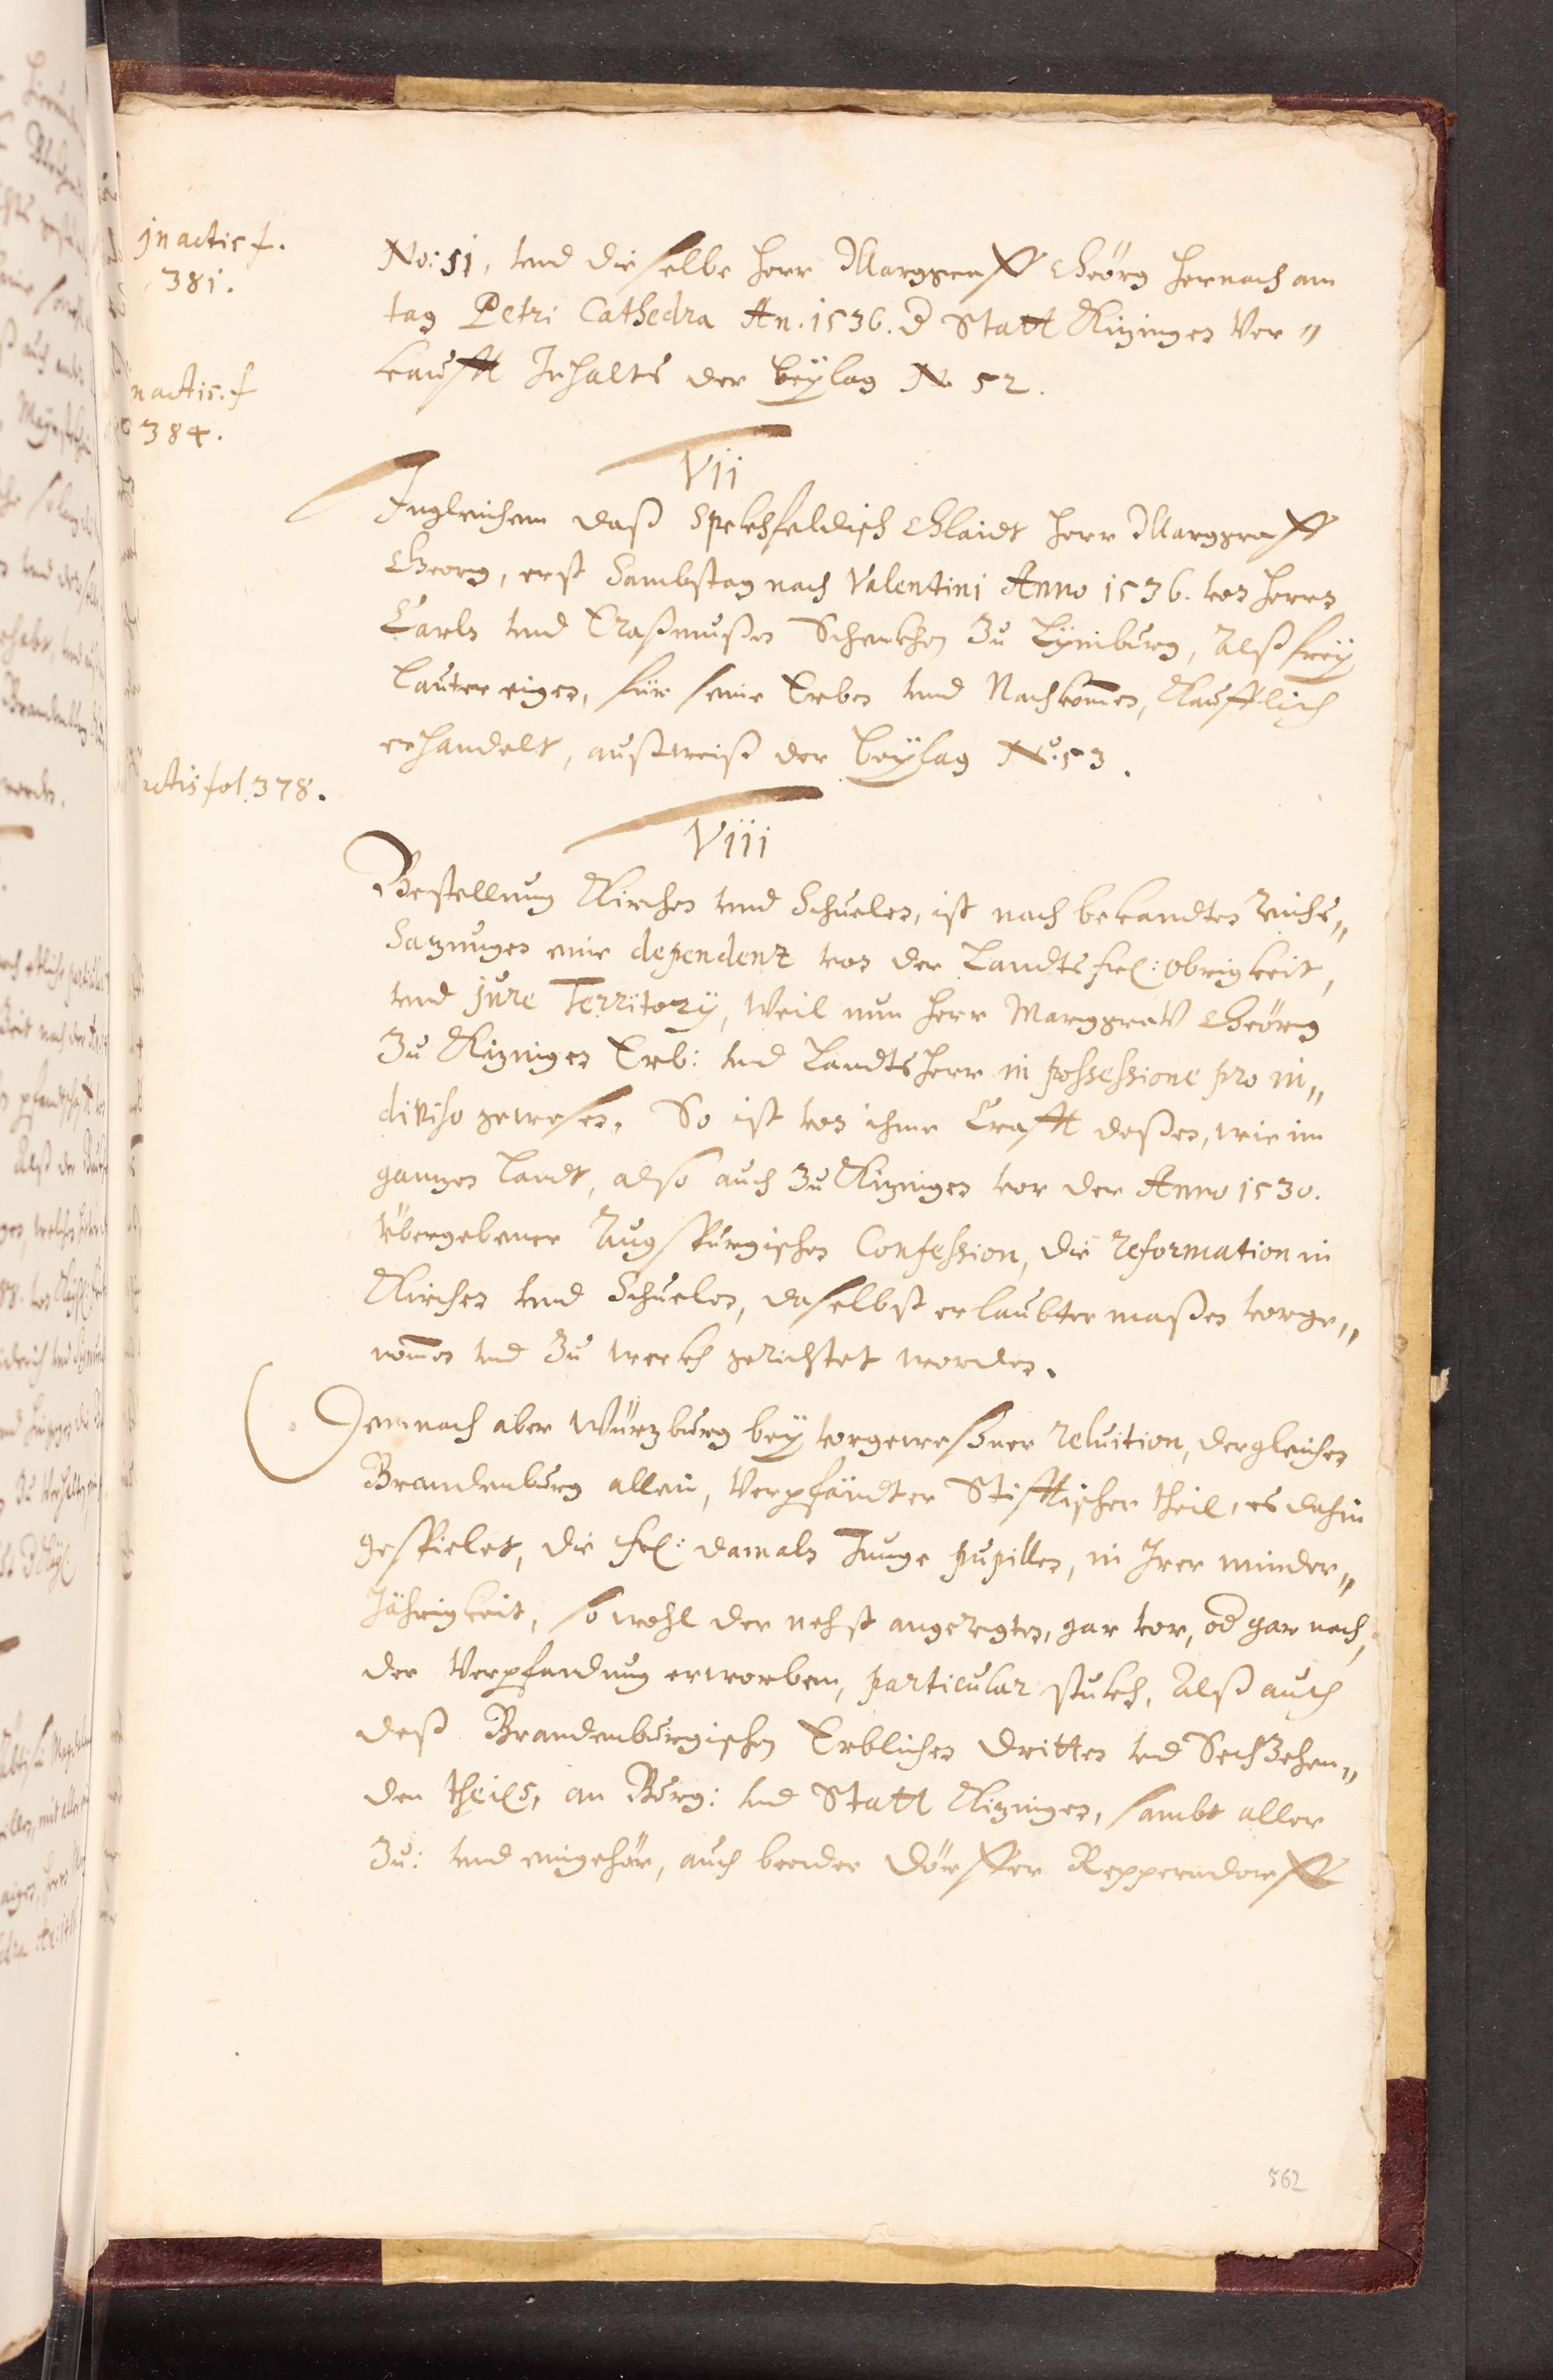 in actis f.
381.
No: 51, vnd dieselbe Herr Marggraff Geörg hernach am
tag Petri Cathedra An. 1536. d Statt Kitzingen Ver„
kaufft Inhalts der beÿlag N. 52.
in actis. f
384.
VII
Ingleichem daß Speckhfeldisch Glaidt Herr Marggraff
Georg, erst Sambstag nach Valentini Anno 1536. von Herrn
Carln vnd Eraßmußen Schenckhen zu Lÿmburg, Alß freÿ
lauter eigen, für seine Erben vnd Nachkommen, Käufflich
erhandelt, außweiß der beÿlag No. 53.
actis fol. 378.
VIII
Bestellung Kirchen vnd Schuelen, ist nach bekandten Reichs„
Satzungen eine dependenz von der Landtsfrl: Obrigkeit,
vnd jure Territorÿ, Weil nun Herr Marggrav Geörg
zu Kitzingen Erb: vnd Landtsherr in possessione pro in„
diviso gewesen, So ist von ihme Crafft deßen, wie im
gantzen Landt, also auch zu Kitzingen vor der Anno 1530.
vbergebener Augspurgischen Confession, die Reformation in
Kirchen vnd Schuelen, daselbst erlaubter maßen vorge„
nommen vnd zu werckh gerichtet worden.
Demnach aber Würzburg beÿ vorgeweßner reluition, dergleichen
Brandenburg allein, Verpfändter Stifftischer theil, es dahin
gespielet, die frl: damals Junge pupillen, in Irer minder„
Jährigkeit, sowohl der nehst angeregten, gar vor, od gar nach,
der Verpfandung erworben, particular stuckh, Alß auch
deß Brandenburgischen Erblichen dritten vnd Sechzehen„
den theils, an Burg: vnd Statt Kitzingen, sambt aller
Zu: vnd eingehör, auch beeder Dörffer Repperndorff
562